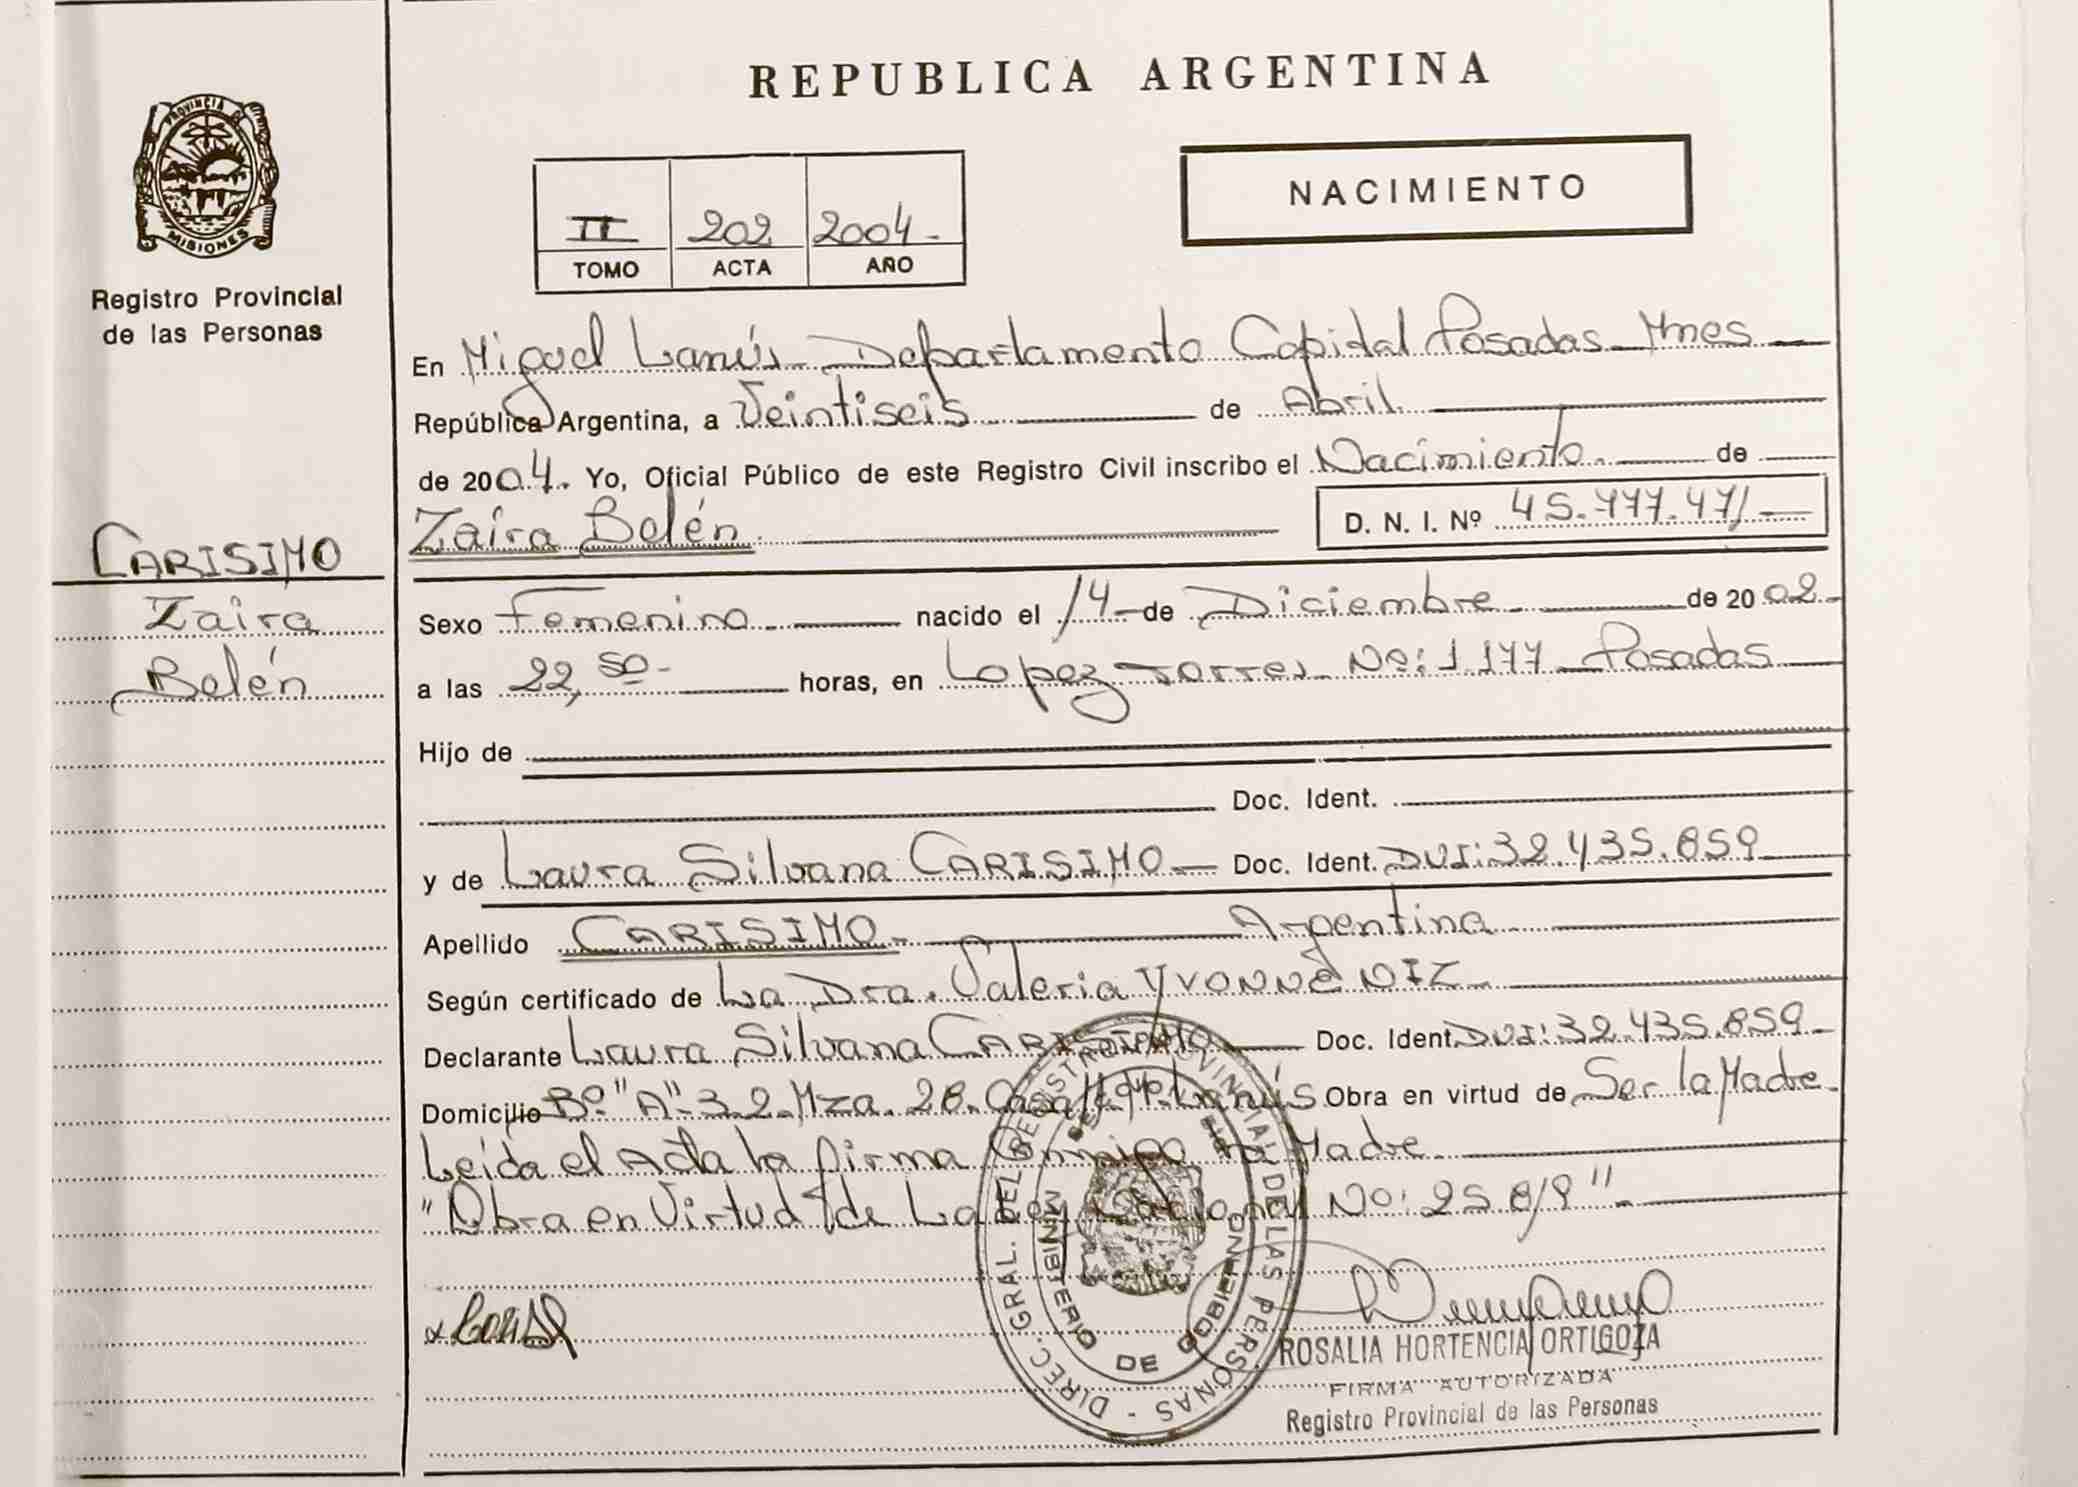 REPUBLICA ARGENTINA
PROVINCIA DE
MISIONES
Registro Provincial
de las Personas
NACIMIENTO
II 202 2004.
TOMO ACTA AÑO
En Miguel Lanús Departamento Capital Posadas Mnes
República Argentina, a Veintiseis de Abril
de 2004. Yo, Oficial Público de este Registro Civil inscribo el Nacimiento de
Zaira Belén D. N. I. Nº 45.777.471
CARISIMO
Zaira
Belén
Sexo Femenino nacido el 14 de Diciembre de 2002
a las 22,50 horas, en Lopez Torres No: 1177 Posadas
Hijo de
Doc. Ident.
y de Laura Silvana CARISIMO Doc. Ident. DUI: 32.435.859
Apellido CARISIMO Argentina
Según certificado de La Dra. Valeria Yvonne NIZ
Declarante Laura Silvana CARISIMO Doc. Ident. DUI: 32.435.859
Domicilio Bº "A" 3.2. Mza. 28. Casa Lanús Obra en virtud de Ser la Madre
Leída el Acta la firma Conmigo la Madre
"Obra en Virtud de La Ley Nacional No: 25.819"
DIREC. GRAL. DEL REGISTRO PROVINCIAL DE LAS PERSONAS
MINISTERIO DE GOBIERNO
ROSALIA HORTENCIA ORTIGOZA
FIRMA AUTORIZADA
Registro Provincial de las Personas